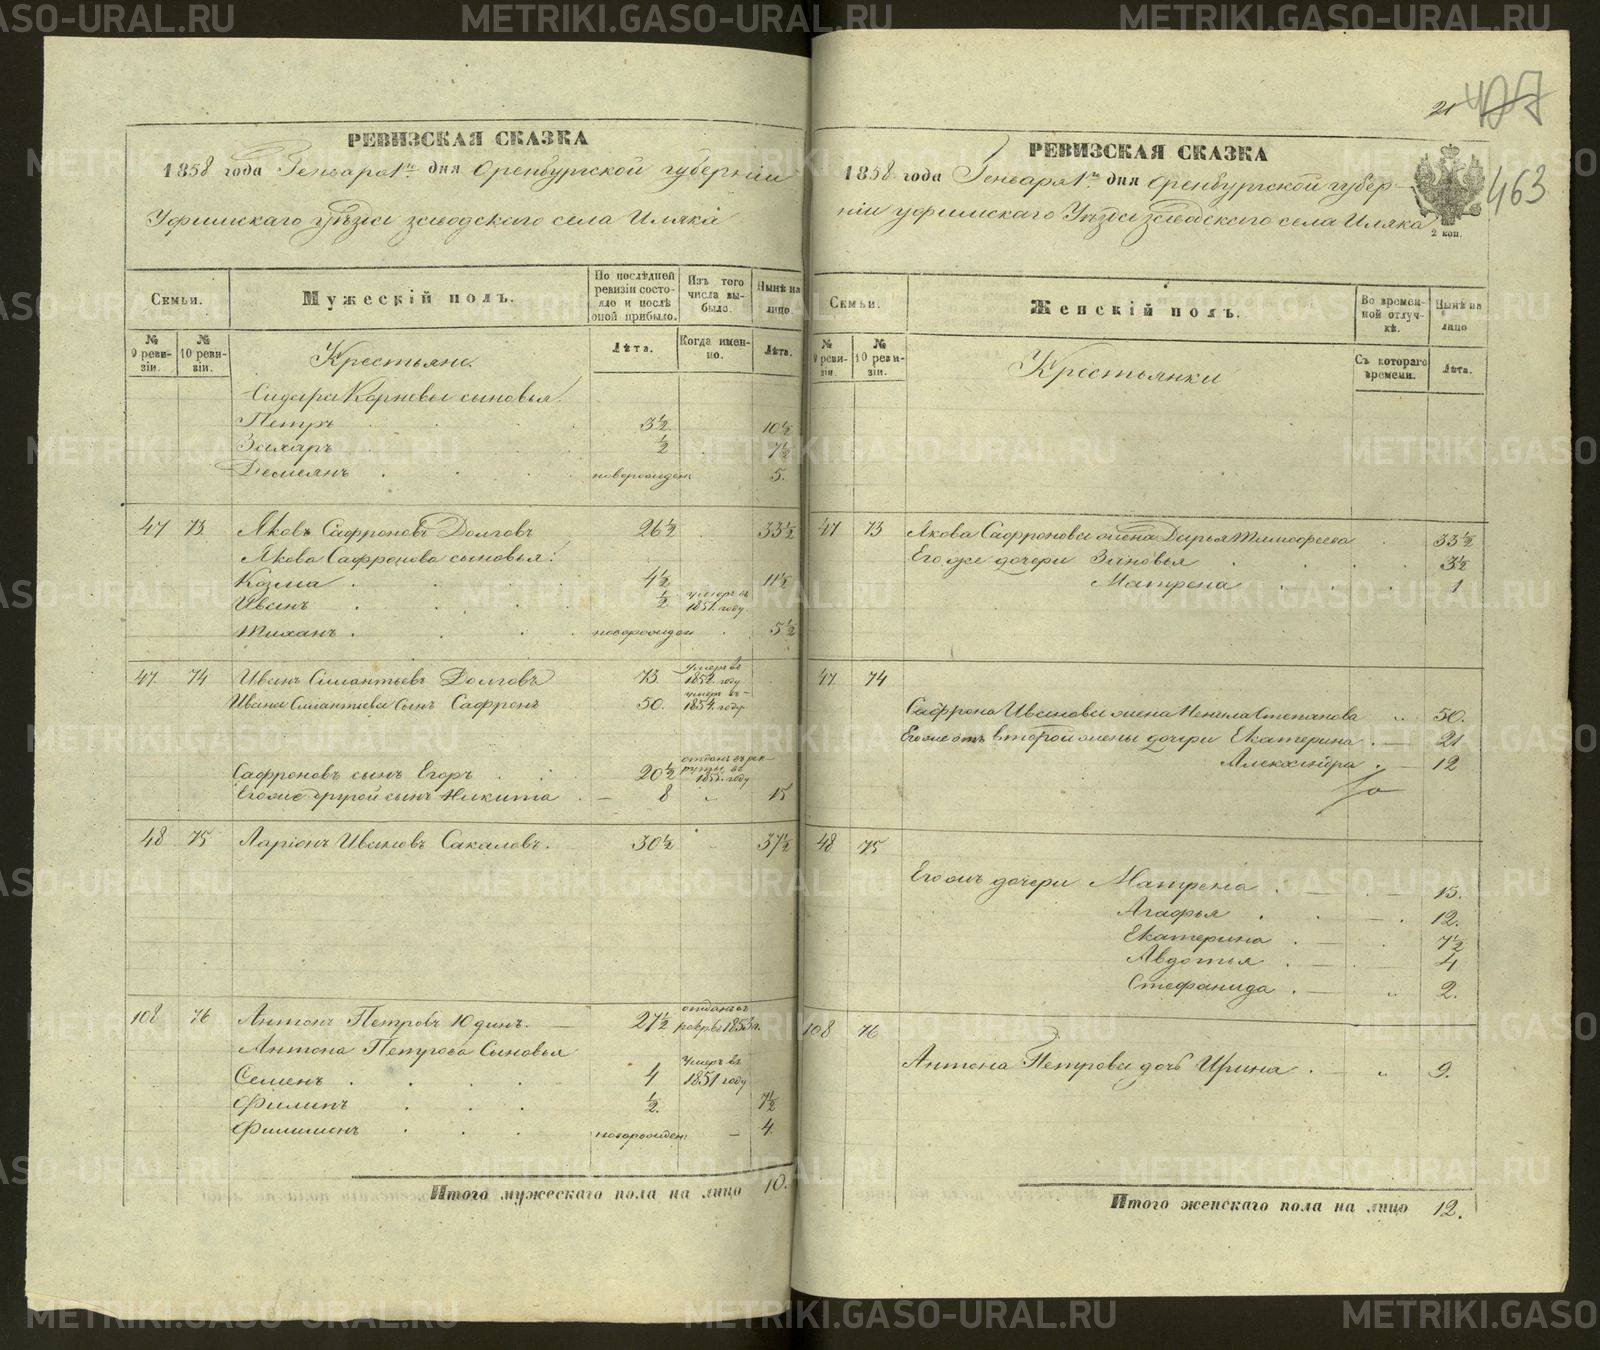 21 427
РЕВИЗСКАЯ СКАЗКА
1858 года Генваря 1го дня Оренбургской губерніи
Уфимскаго уѣзда заводскаго села Иляка
Семьи.
Мужескій полъ.
По послѣдней ревизіи состояло и послѣ оной прибыло.
Изъ того числа выбыло.
Нынѣ на лицо.
№ 9 ревизіи.
№ 10 ревизіи.
Крестьяне.
Лѣта.
Когда именно.
Лѣта.
Сидора Карпова сыновья:
Петръ 3½ 10½
Захаръ ½ 7½
Демьянъ новорожден: 5.
47 73 Яковъ Сафроновъ Долговъ 26½ 33½
Якова Сафронова сыновья:
Козма 4½ 11½
Иванъ ½ умеръ въ 1851 году
Тиханъ новорожден 5½
47 74 Иванъ Долговъ 73 умеръ въ 1852 году
Ивана сынъ Сафронъ 50. умеръ въ 1854 году
Сафроновъ сынъ Егоръ 20½ отданъ въ рекруты въ 1855 году
Егоже другой сынъ Никита 8 15
48 75 Ларіонъ Ивановъ Сакаловъ. 30½ 37½
108 76 Антонъ Петровъ Юдинъ. 27½ отданъ въ рекр. въ 1853 г.
Антона Петрова Сыновья
Семенъ 4 Умеръ въ 1851 году
Филипъ ½. 7½
Филимонъ новорожден: 4.
Итого мужескаго пола на лицо 10.
РЕВИЗСКАЯ СКАЗКА
1858 года Генваря 1го дня Оренбургской губер-
ніи уфимскаго Уѣзда заводскаго села Иляка
2 коп.
463
Семьи.
Женскій полъ.
Во временной отлучкѣ.
Нынѣ на лицо
№ 9 ревизіи.
№ 10 ревизіи.
Крестьянки
Съ котораго времени.
Лѣта.
47 73 Якова Сафронова жена Дарья Тимофеева 33½
Его же дочери Зиновья 3½
Матрена 1
47 74
Сафрона Иванова жена Ненила Степанова 50.
Егоже отъ второй жены дочери Екатерина 21
Александра 12
48 75
Его жъ дочери Матрена 15.
Агафья 12.
Екатерина 7½
Авдотья 4
Стефанида 2.
108 76
Антона Петрова дочь Ирина 9.
Итого женскаго пола на лицо 12.
METRIKI.GASO-URAL.RU